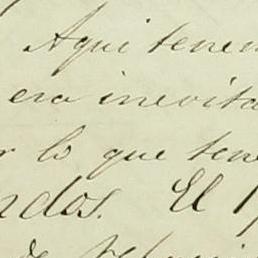 Aqui tenem
era inevita
r lo que tene
ndos. El
de